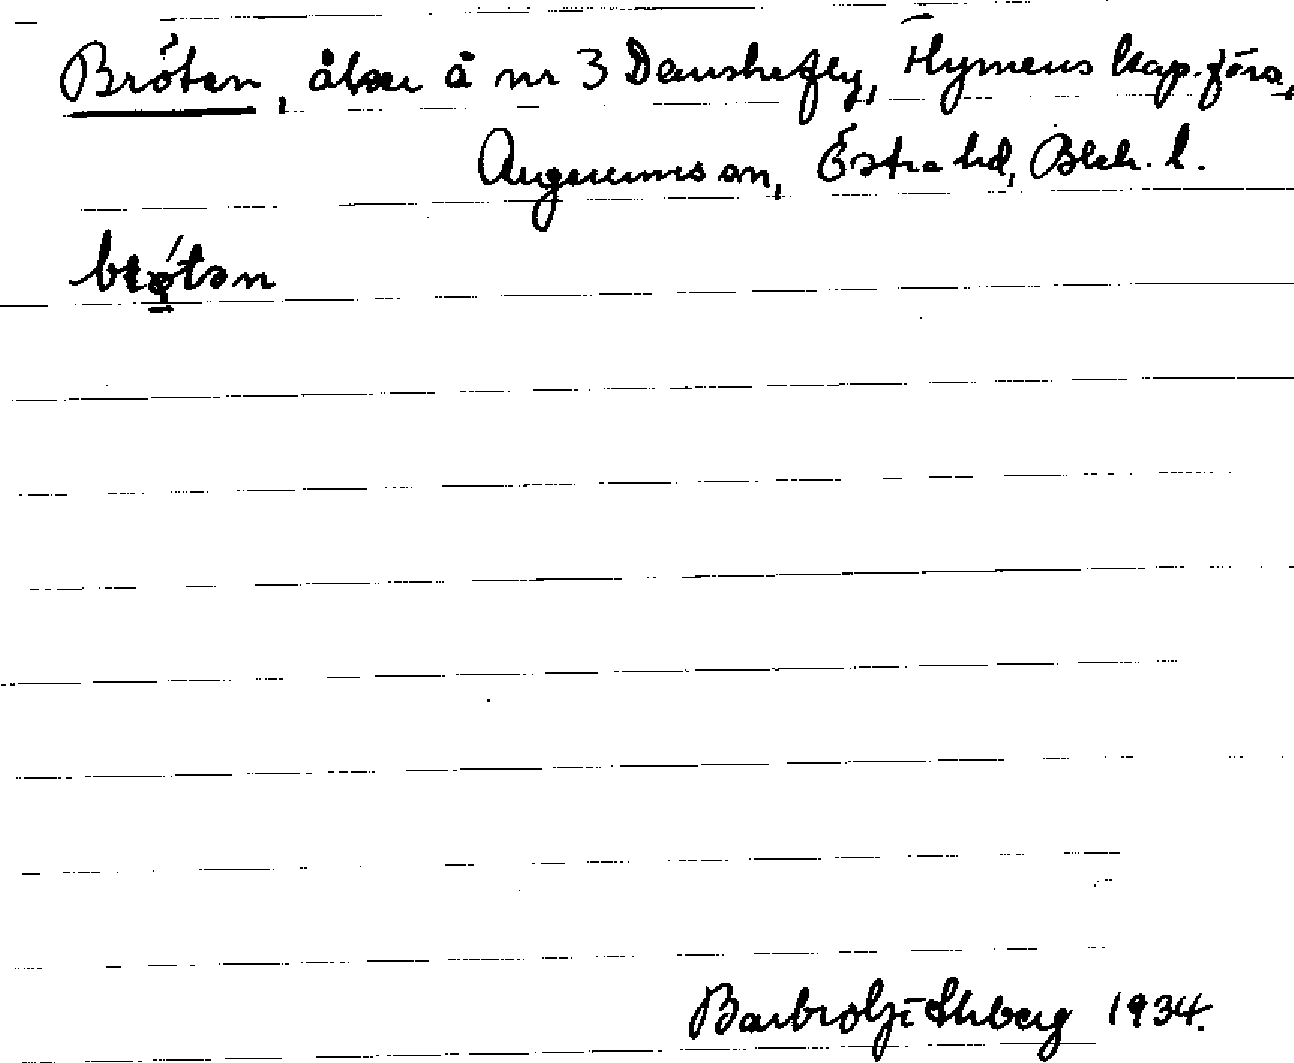 Bröten, åker å nr 3 Danskefly, Flymens kap.förs,
Augerums sn, Östra hd, Blek. l.
brø̀tən
Barbro 1934.